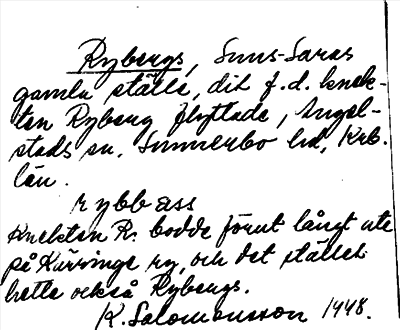 Rybergs, Suns-Saras
gamla ställe, dit f.d. knek-
ten Ryberg flyttade, Angel-
stads sn. Sunnerbo hd, Krb.
län.
rybbass
Knekten R. bodde förut långt ute
på Kärringe ry, och det stället
hette också Rybergs.
K. Salomonsson 1948.